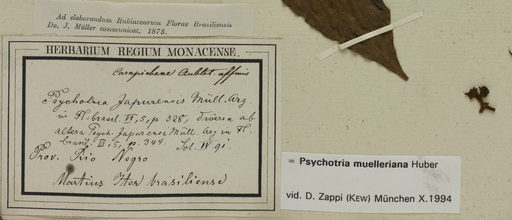 Ad elaborandum Rubiacearum Florae Brasiliensis
Do. J. Müller communicat. 1873.
HERBARIUM REGIUM MONACENSE.
Carapichea Aublet. affinis
Psychotria Japurensis Müll. Arg
in Fl. brasil. VI, 5, p. 328, diversa ab
altera Psych. Japurensi Müll. Arg in Fl.
brasil. VI, 5, p. 344.
Prov. Rio Negro
Martius Iter brasiliense
= Psychotria muelleriana Huber
vid. D. Zappi (KEW) München X.1994